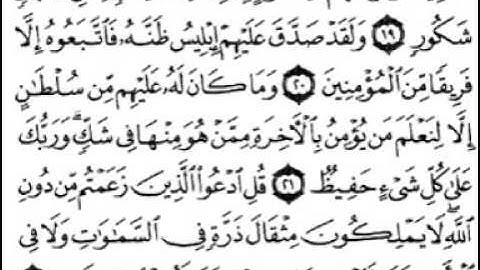 شَكُورٍ ١٩ وَلَقَدْ صَدَّقَ عَلَيْهِمْ إِبْلِيسُ ظَنَّهُۥ فَٱتَّبَعُوهُ إِلَّا
فَرِيقًا مِّنَ ٱلْمُؤْمِنِينَ ٢٠ وَمَا كَانَ لَهُۥ عَلَيْهِم مِّن سُلْطَٰنٍ
إِلَّا لِنَعْلَمَ مَن يُؤْمِنُ بِٱلْأَخِرَةِ مِمَّنْ هُوَ مِنْهَا فِى شَكٍّ ۗ وَرَبُّكَ
عَلَىٰ كُلِّ شَىْءٍ حَفِيظٌ ٢١ قُلِ ٱدْعُوا۟ ٱلَّذِينَ زَعَمْتُم مِّن دُونِ
ٱللَّهِ ۖ لَا يَمْلِكُونَ مِثْقَالَ ذَرَّةٍ فِى ٱلسَّمَٰوَٰتِ وَلَا فِى